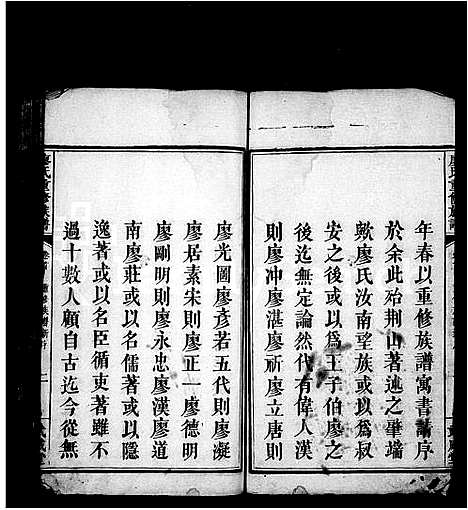 年春以重修族譜寓書請序
於余此殆荆山著述之肇端
歟廖氏汝南望族或以爲叔
安之後或以爲王子伯廖之
後迄無定論然代有偉人漢
則廖冲廖湛廖祈廖立唐則
廖氏重修族譜
廖光圖廖彥若五代則廖凝
廖居素宋則廖正一廖德明
廖剛明則廖永忠廖漢廖道
南廖莊或以名儒著或以隱
逸著或以名臣循吏著雖不
過十數人顧自古迄今從無
廖氏重修族譜